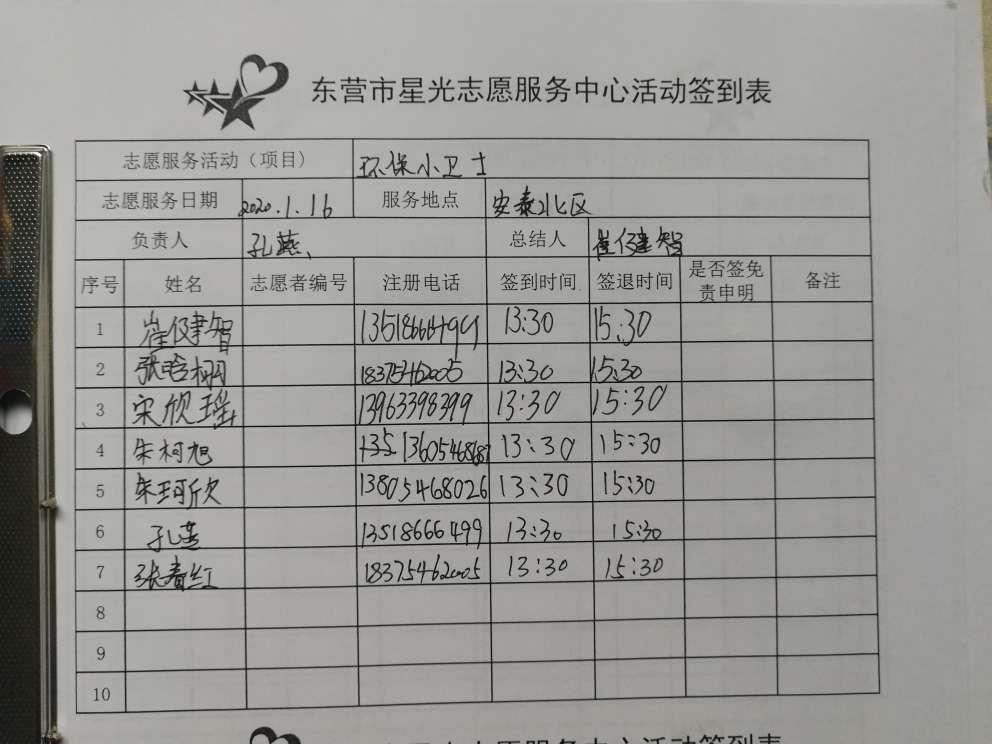 东营市星光志愿服务中心活动签到表
志愿服务活动（项目） 环保小卫士
志愿服务日期 2020.1.16 服务地点 安泰北区
负责人 孔燕 总结人 崔健智
序号 姓名 志愿者编号 注册电话 签到时间 签退时间 是否签免责申明 备注
1 崔健智 13518666499 13:30 15:30
2 张晗栩 18375462005 13:30 15:30
3 宋欣瑶 13963398399 13:30 15:30
4 朱柯旭 13:30 15:30
5 朱珂欣 13805468026 13:30 15:30
6 孔燕 13518666499 13:30 15:30
7 张春红 18375462005 13:30 15:30
8
9
10
东营市星光志愿服务中心活动签到表